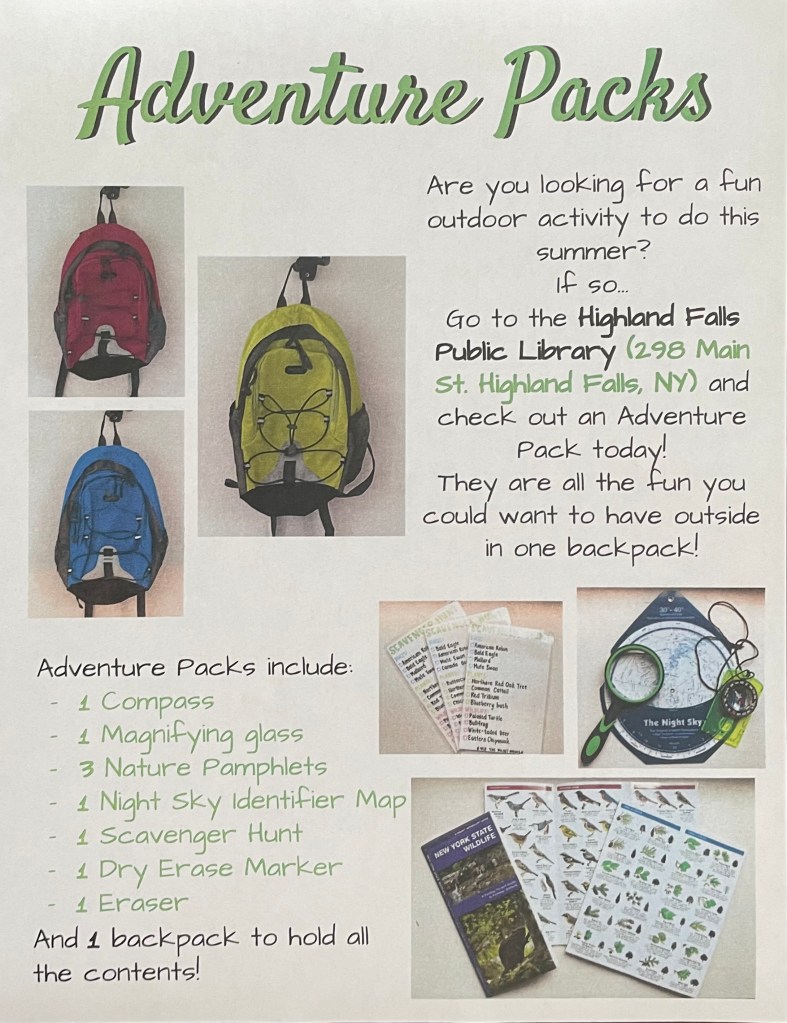 Adventure Packs
Are you looking for a fun
outdoor activity to do this
summer?
If so...
Go to the Highland Falls
Public Library (298 Main
St. Highland Falls, NY) and
check out an Adventure
Pack today!
They are all the fun you
could want to have outside
in one backpack!
Adventure Packs include:
- 1 Compass
- 1 Magnifying glass
- 3 Nature Pamphlets
- 1 Night Sky Identifier Map
- 1 Scavenger Hunt
- 1 Dry Erase Marker
- 1 Eraser
And 1 backpack to hold all
the contents!
American Robin
Bald Eagle
Mallard
Mute Swan
Northern Red Oak Tree
Common Cattail
Red Trillium
Blueberry bush
Painted Turtle
Bullfrog
White-tailed Deer
Eastern Chipmunk
30°-40°
The Night Sky
NEW YORK STATE
WILDLIFE